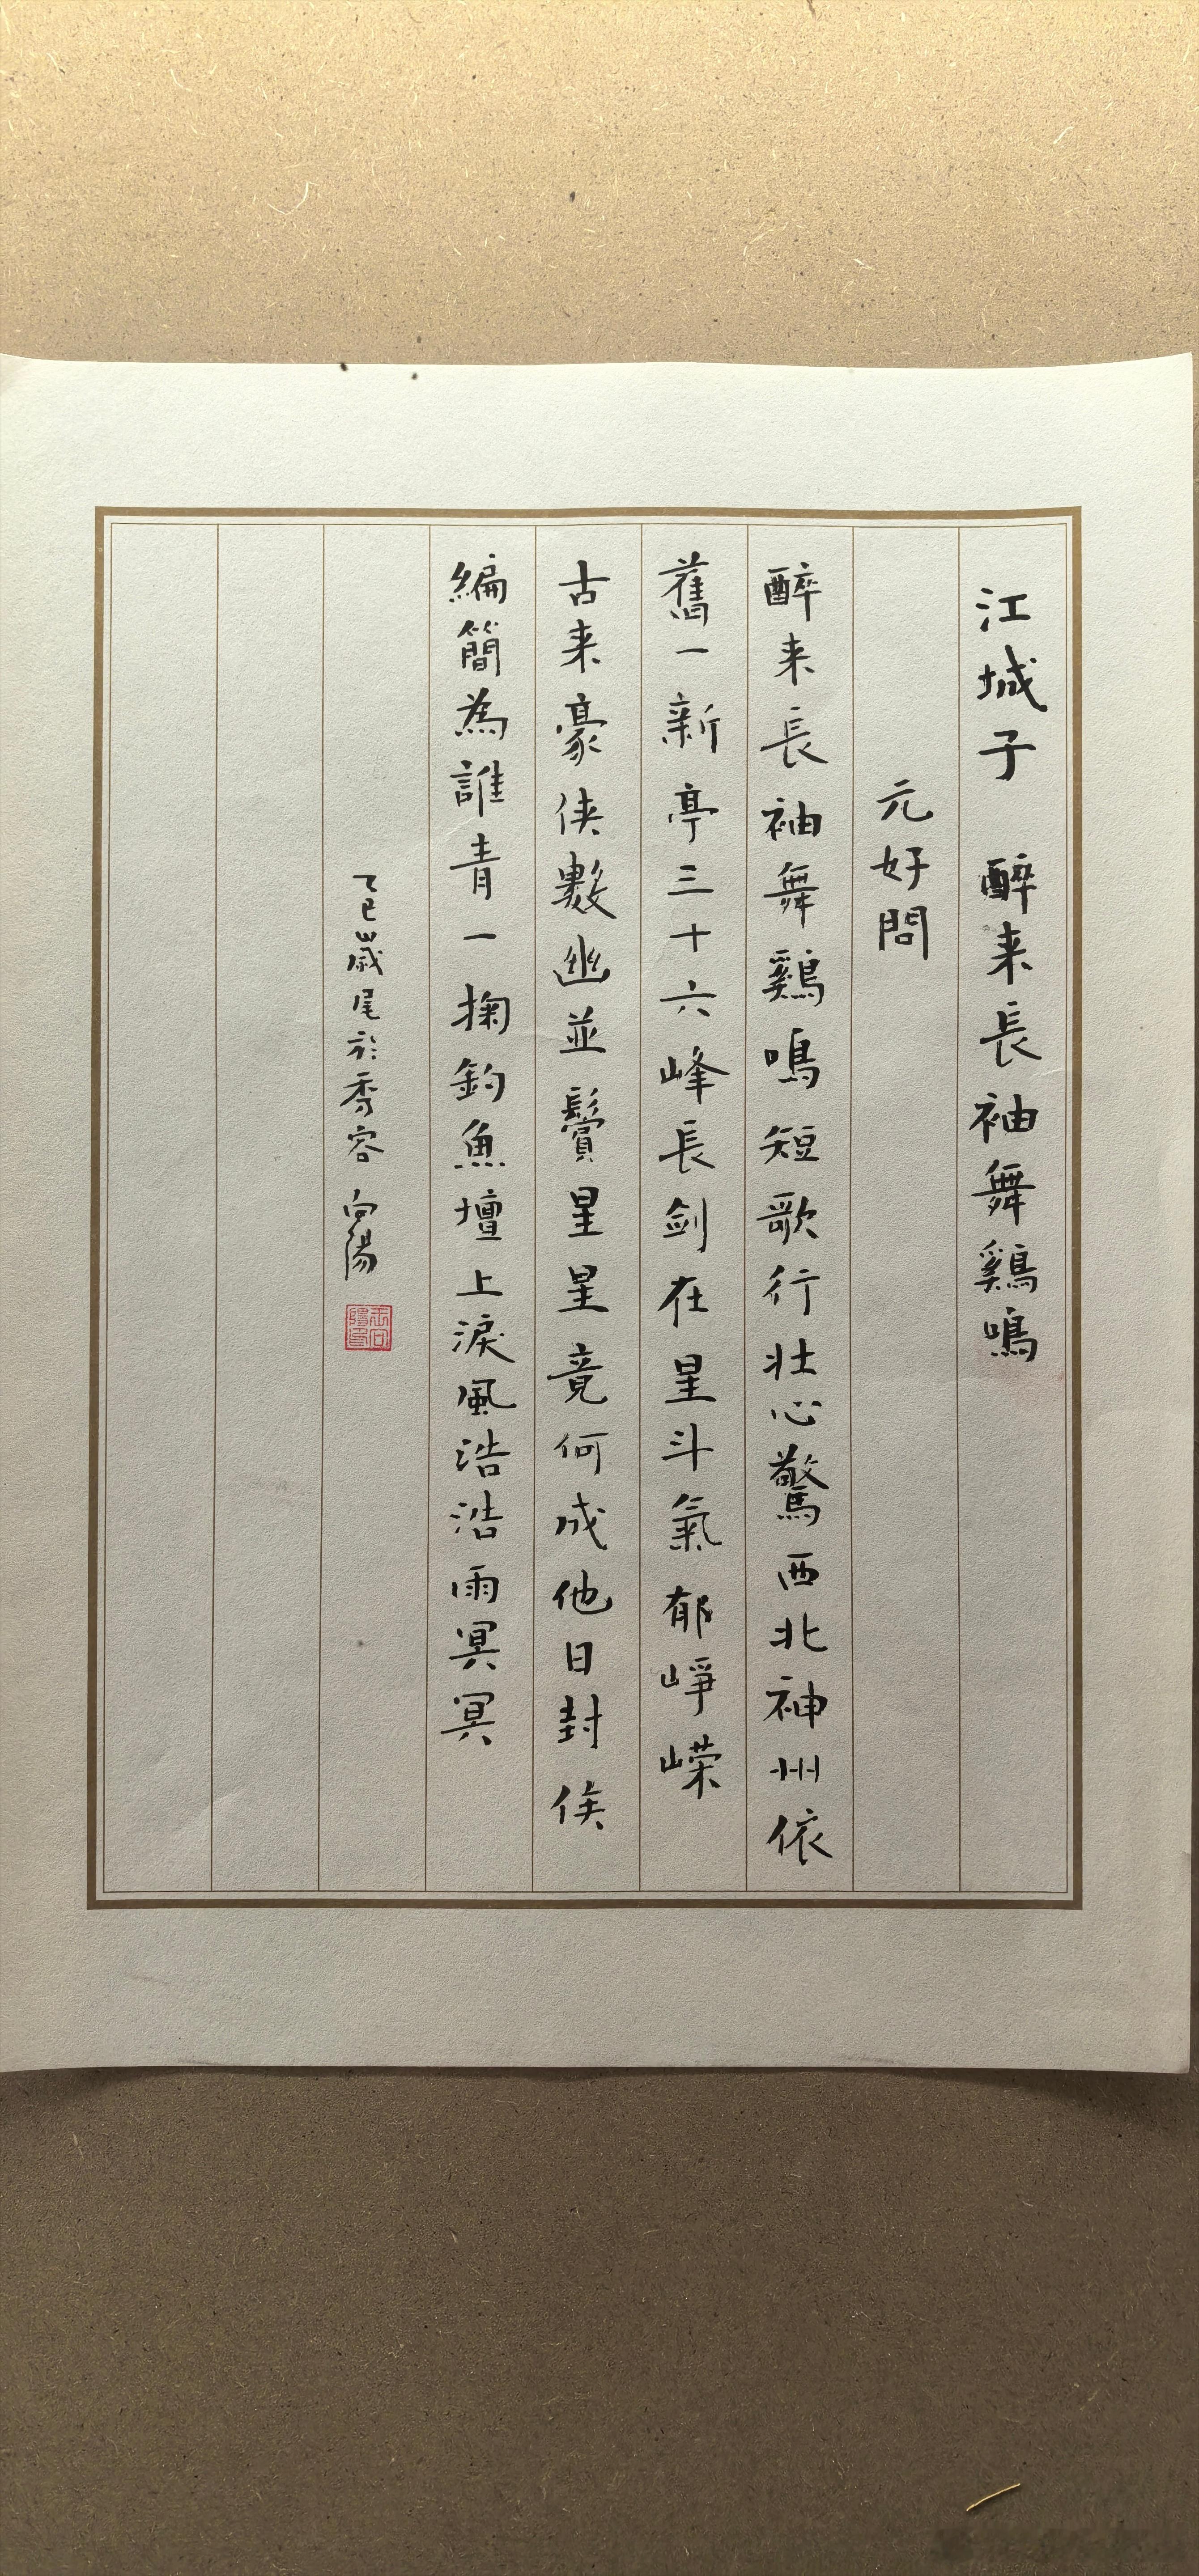 江城子 醉来長袖舞鷄鳴
元好問
醉来長袖舞鷄鳴短歌行壮心驚西北神州依
舊一新亭三十六峰長劍在星斗氣郁崢嶸
古来豪俠數幽並鬢星星竟何成他日封侯
編簡為誰青一掬釣魚壇上淚風浩浩雨冥冥
乙巳歲尾於秀容 向陽